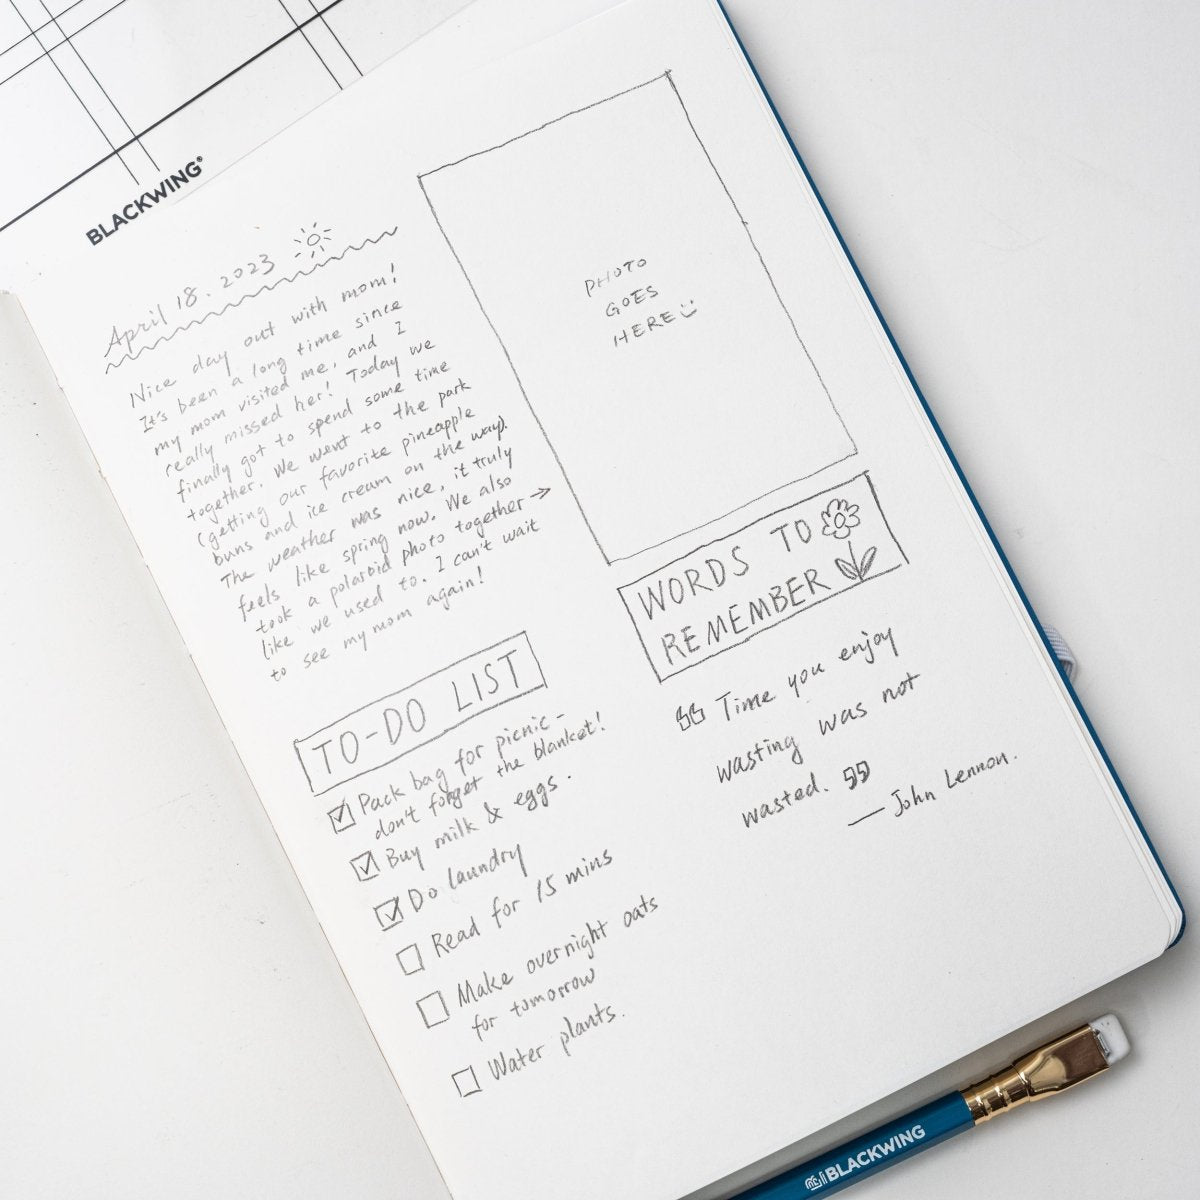 BLACKWING®
April 18. 2023
Nice day out with mom!
It's been a long time since
my mom visited me, and I
really missed her! Today we
finally got to spend some time
together. We went to the park
(getting our favorite pineapple
buns and ice cream on the way).
The weather was nice, it truly
feels like spring now. We also
took a polaroid photo together →
like we used to. I can't wait
to see my mom again!
TO-DO LIST
Pack bag for picnic -
don't forget the blanket!
Buy milk & eggs.
Do laundry
Read for 15 mins
Make overnight oats
for tomorrow
Water plants.
PHOTO
GOES
HERE
WORDS TO
REMEMBER
“ Time you enjoy
wasting was not
wasted. ”
— John Lennon.
BLACKWING